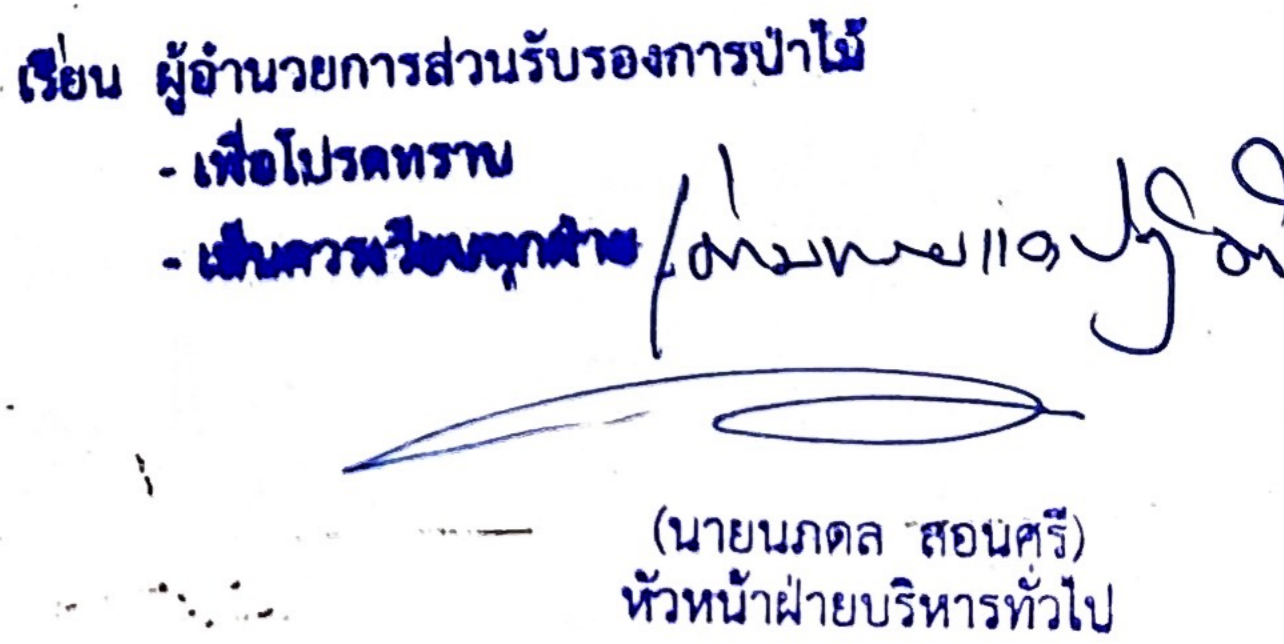 เรียน ผู้อำนวยการส่วนรับรองการป่าไม้
- เพื่อโปรดทราบ
- เห็นควรเวียนทุกฝ่าย
(นายนภดล สอนศรี)
หัวหน้าฝ่ายบริหารทั่วไป